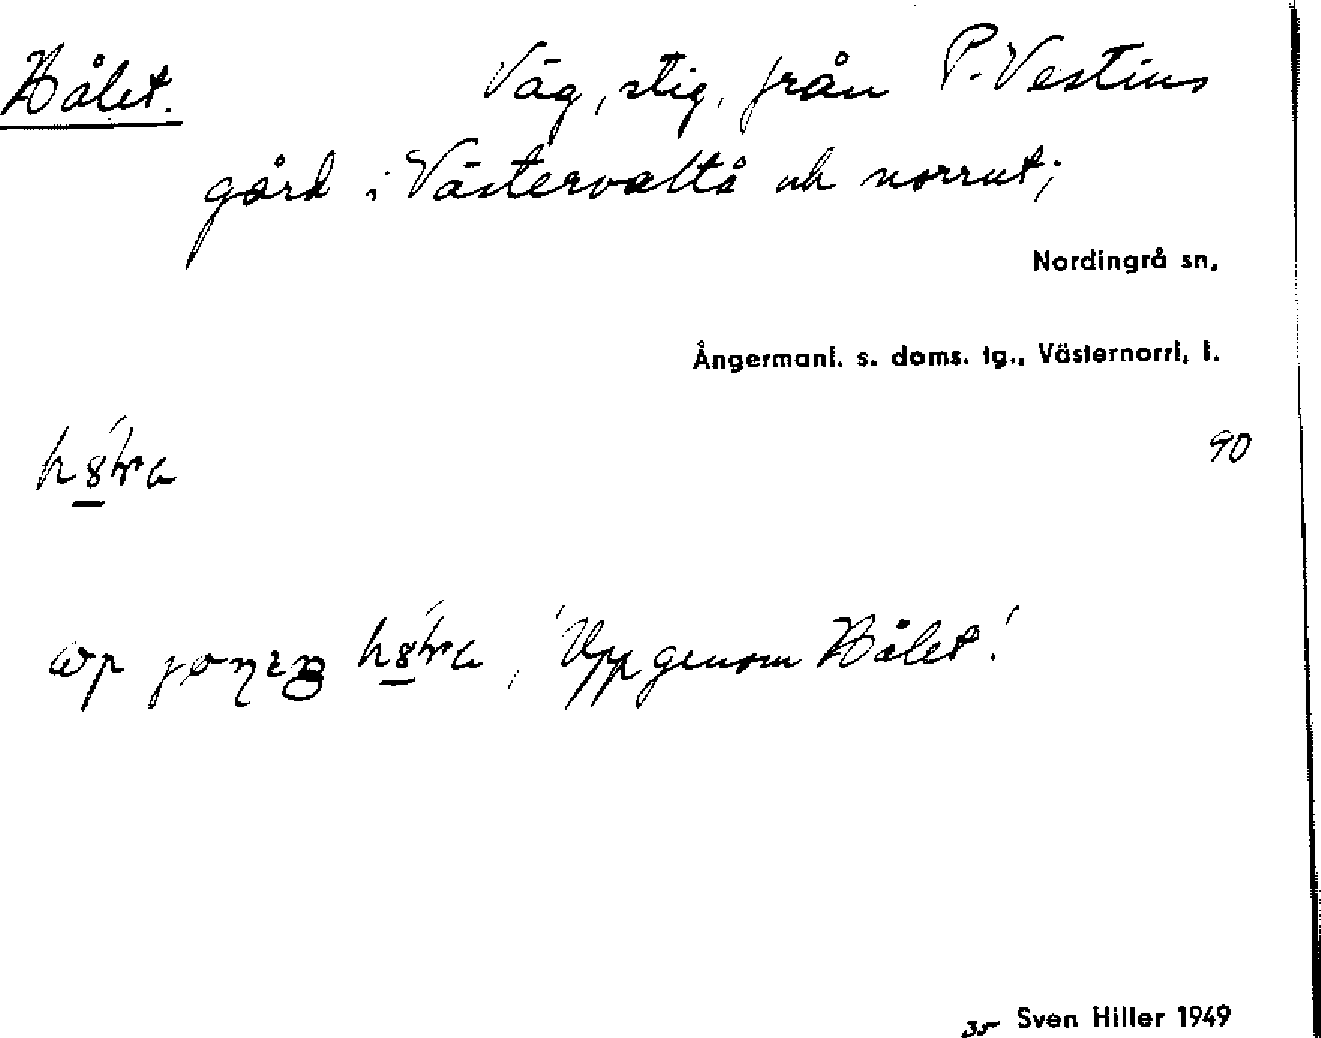 Hålet. Väg, stig, från P. Vestins
gård i Västervaltå och norrut;
Nordingrå sn,
Ångermanl. s. doms. tg., Västernorrl. l.
90
'Upp genom Hålet.'
35 Sven Hiller 1949